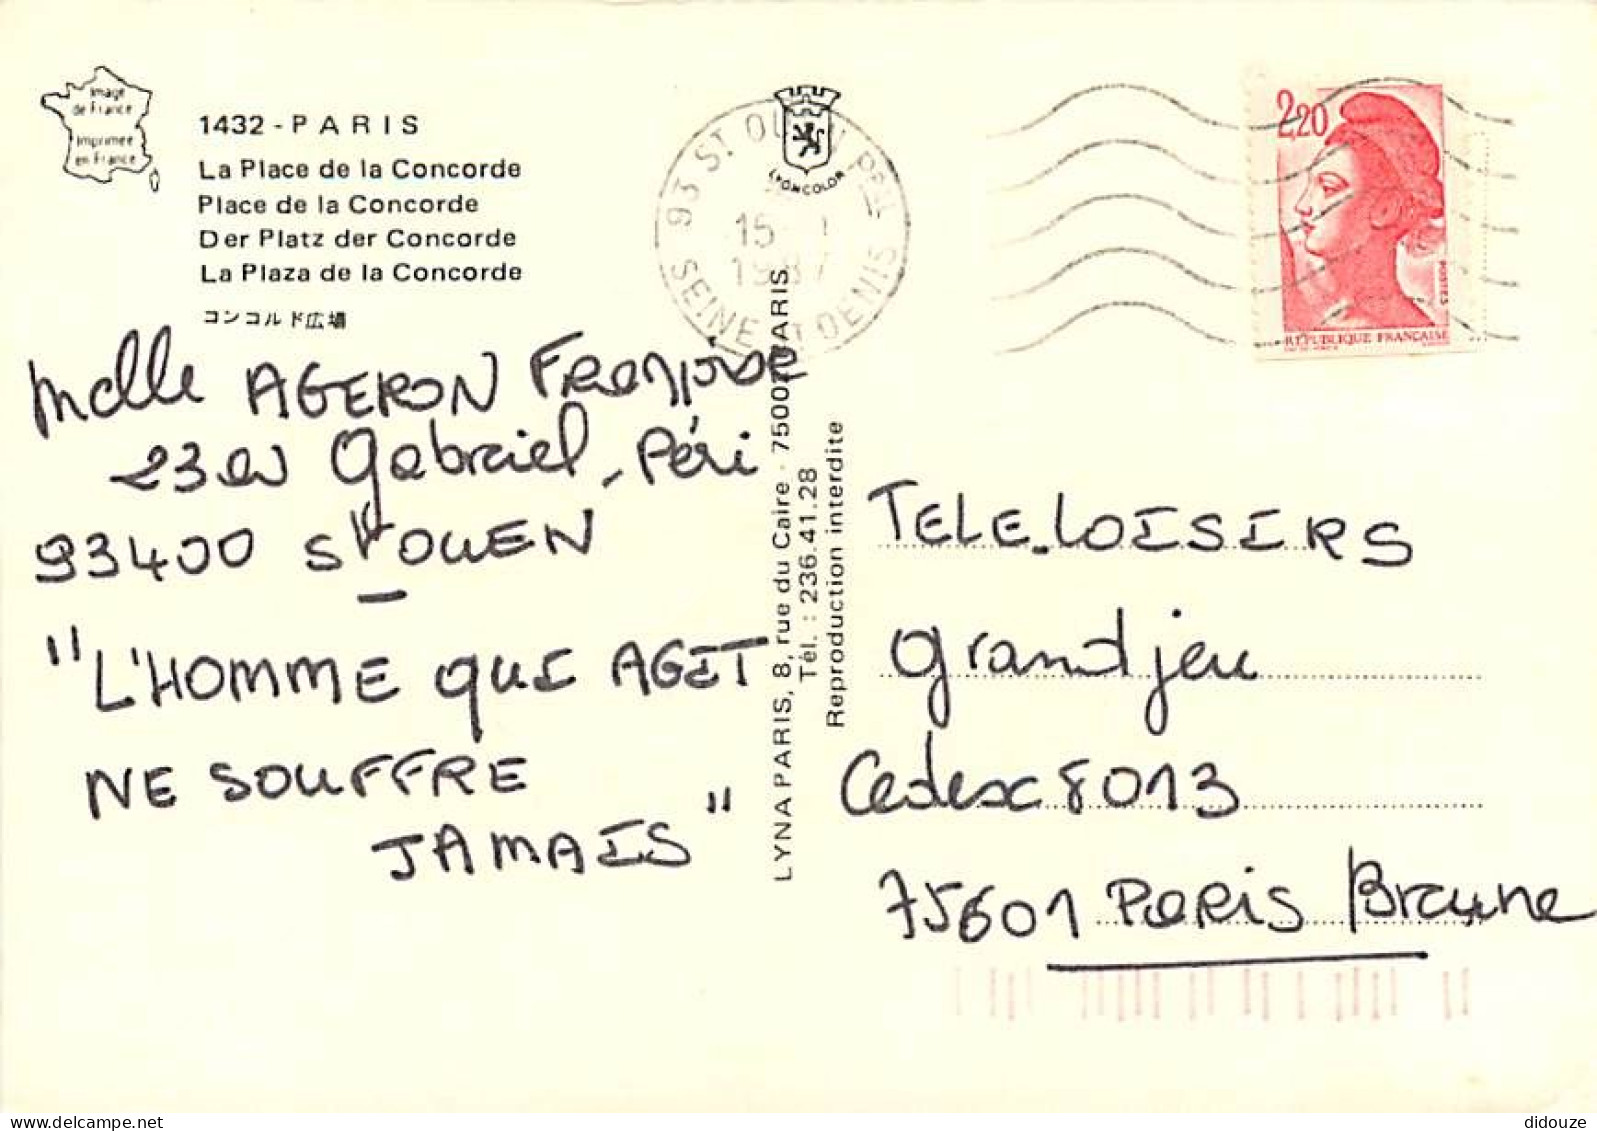 Image
de France
Imprimée
en France
1432 - PARIS
La Place de la Concorde
Place de la Concorde
Der Platz der Concorde
La Plaza de la Concorde
コンコルド広場
LYONCOLOR
93 ST OUEN PPAL
15
1987
SEINE ST DENIS
2,20
POSTES
RÉPUBLIQUE FRANÇAISE
Melle AGERON Françoise
23 av Gabriel-Péri
93400 St OUEN
"L'HOMME QUI AGIT
NE SOUFFRE
JAMAIS"
LYNA PARIS, 8, rue du Caire - 75002 PARIS
Tél. : 236.41.28
Reproduction interdite
TELE-LOISIRS
grand jeu
Cedex 8013
75601 PARIS Brune
didouze